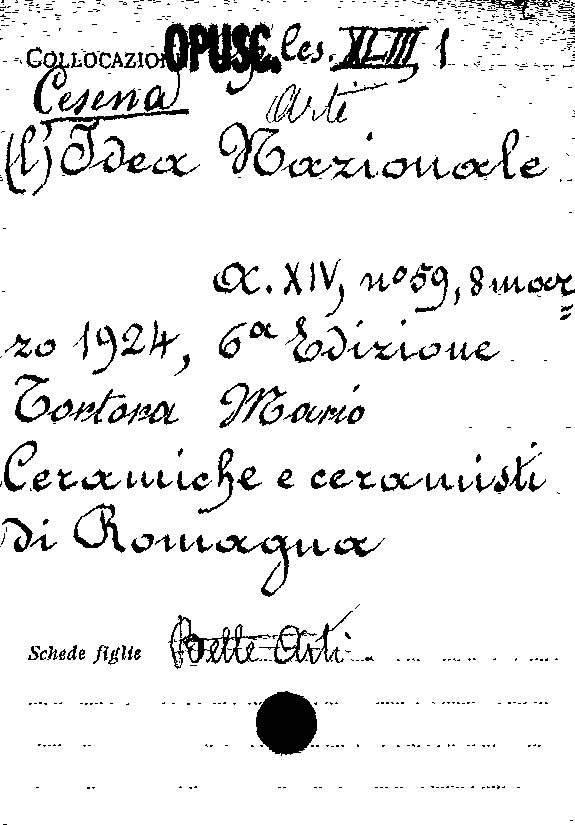 COLLOCAZION OPUSC. Ces. XLIII 1
Cesena Arti
(L') Idea Nazionale
a. XIV, nº 59, 8 mar=
zo 1924, 6ª Edizione
Tortora Mario
Ceramiche e ceramisti
di Romagna
Schede figlie Belle Arti